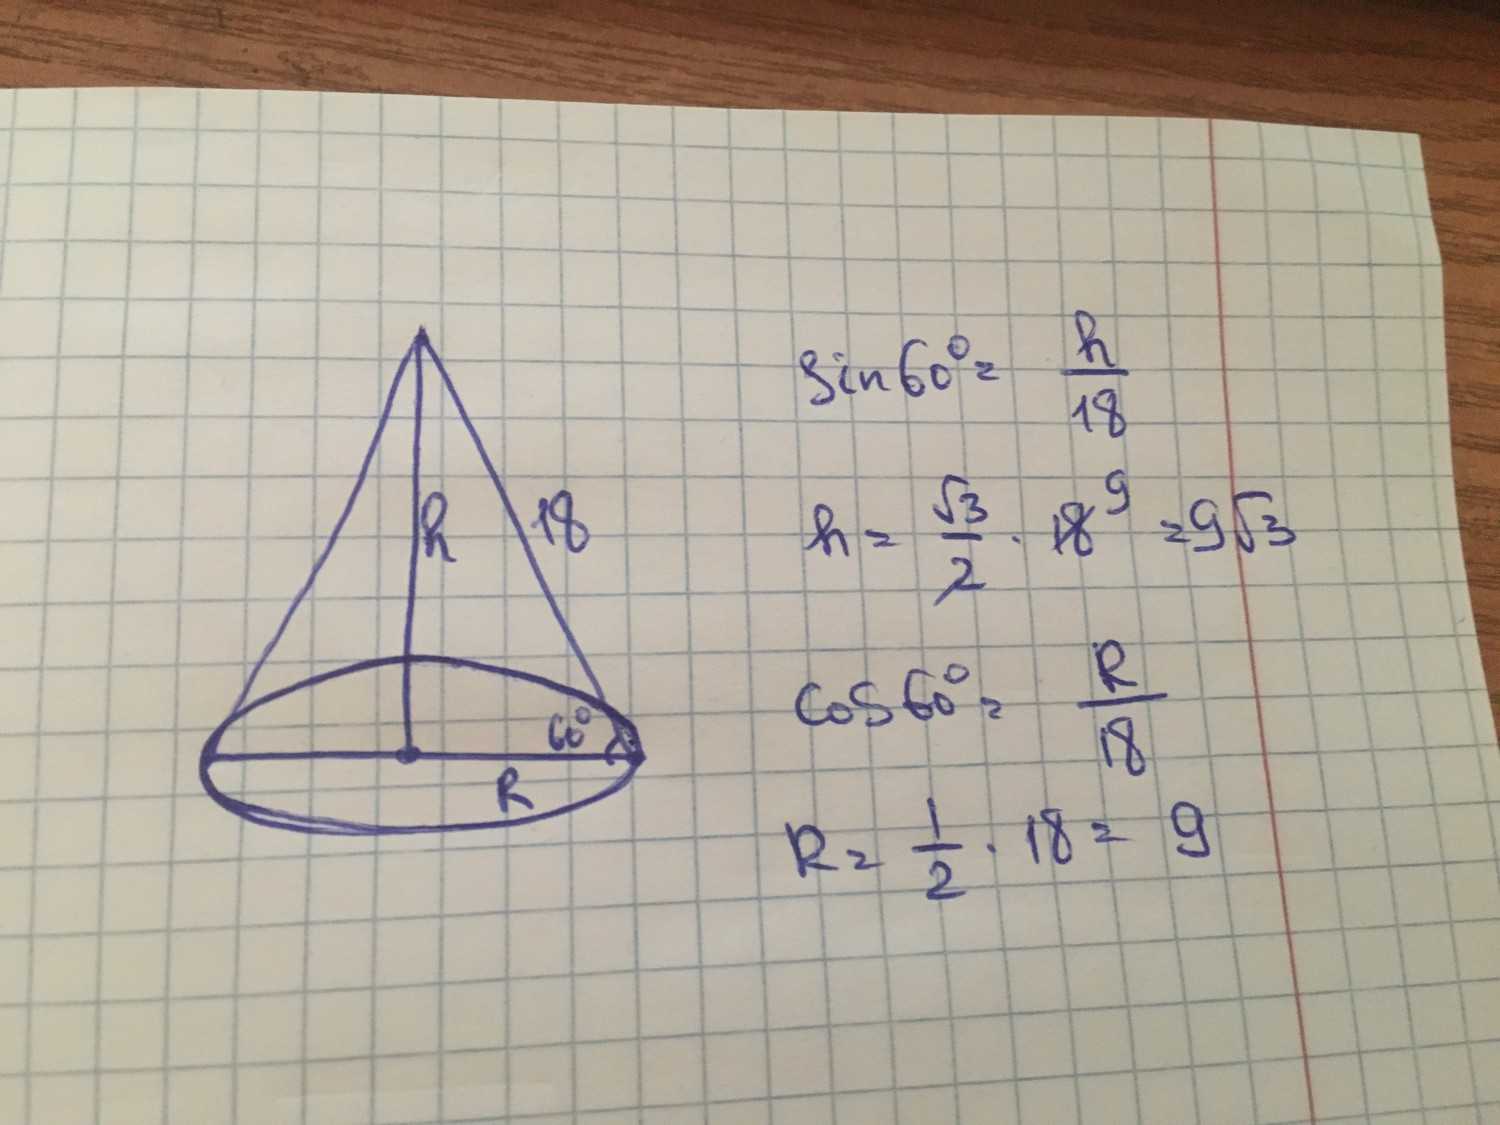 h
18
60°
R
sin60° = h/18
h = √3/2 · 18 9 = 9√3
cos60° = R/18
R = 1/2 · 18 = 9